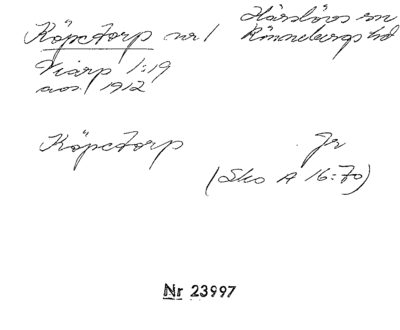 Köpetorp nr 1 Härslövs sn
Rönnebergs hd
Viarp 1:19
avs. 1912
Köpetorp Jr
(Sko A 16:70)
Nr 23997